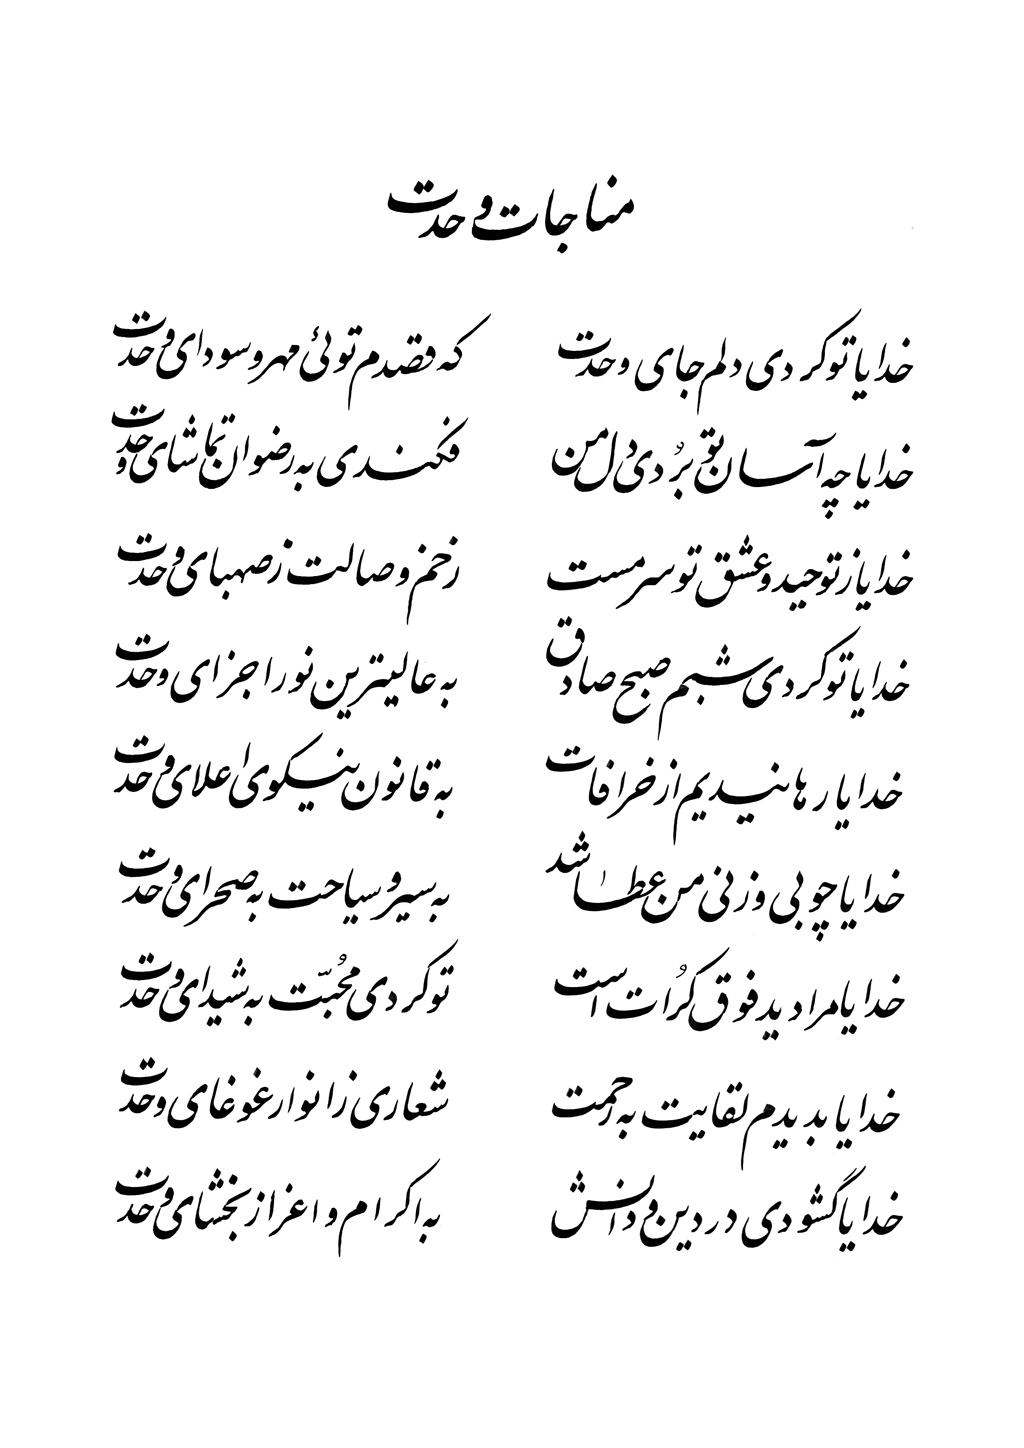 مناجات وحدت
خدایا تو کردی دلم جای وحدت که قصدم توئی مهر و سودای وحدت
خدایا چه آسان تو بُردی دل من فکندی به رضوان تماشای وحدت
خدایا ز توحید و عشق تو سرمست زخم وصالت ز صهبای وحدت
خدایا تو کردی شبم صبح صادق به عالیترین نور اجزای وحدت
خدایا رهانیدیم از خرافات به قانون نیکوی اعلای وحدت
خدایا چو بی وزنی من عطا شد به سیر و سیاحت به صحرای وحدت
خدایا مرا دید فوق کُرات است تو کردی محُبّت به شیدای وحدت
خدایا بدیدم لقایت به رحمت شعاری ز انوار غوغای وحدت
خدایا گشودی در دین و دانش به اکرام و اعزاز بخشای وحدت